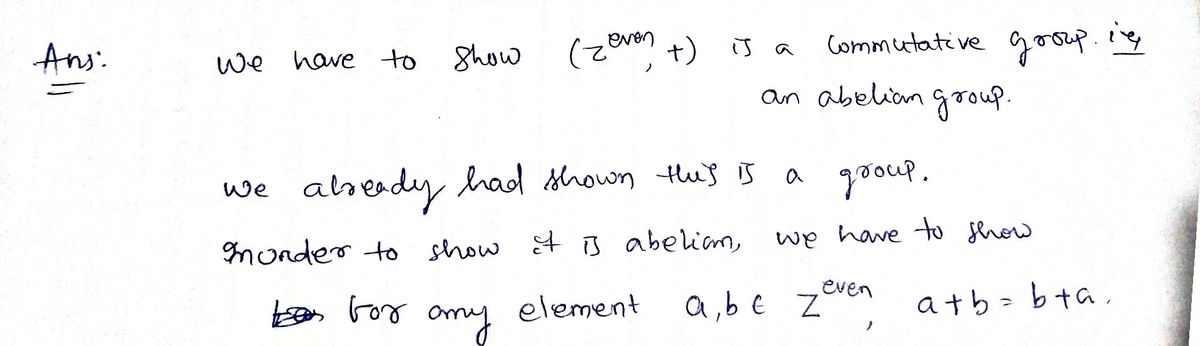 Ans: We have to show (Z^even, +) is a commutative group. i.e,
an abelian group.
We already had shown this is a group.
Inorder to show it is abelian, we have to show
for any element a, b ∈ Z^even, a + b = b + a.